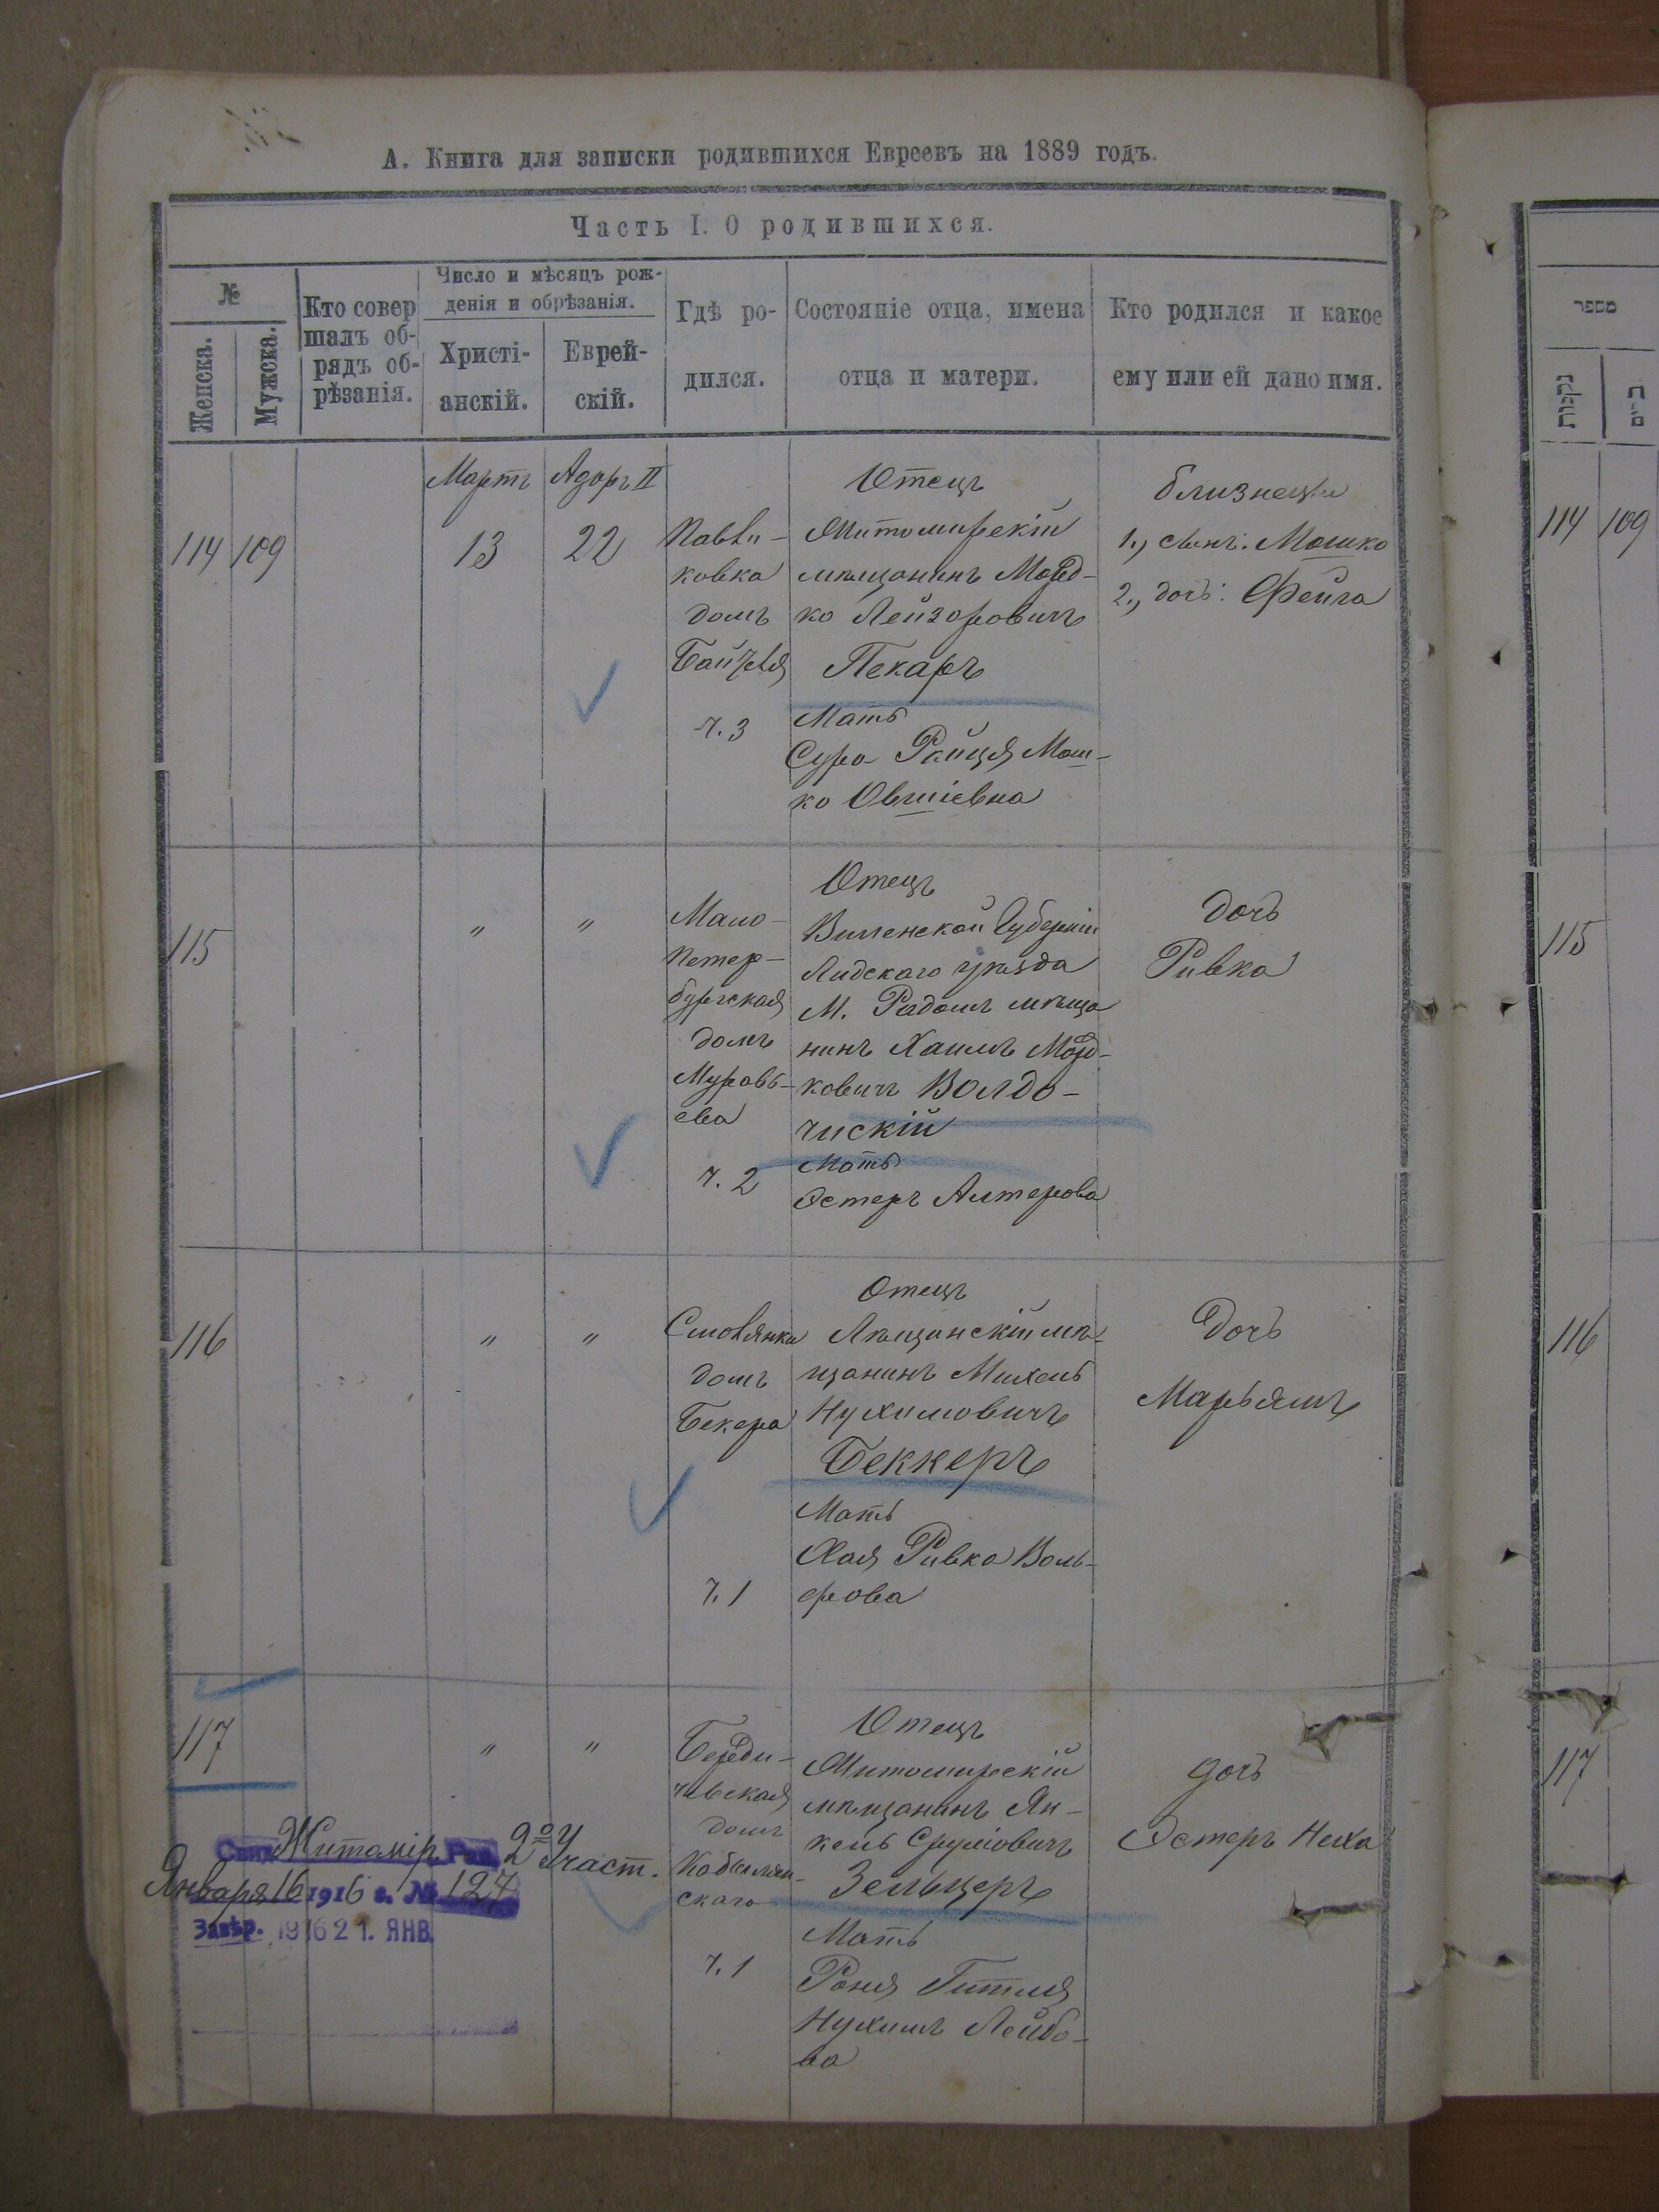 А. Книга для записки родившихся Евреевъ на 1889 годъ.
Часть I. О родившихся.
№
Женска.
Мужска.
Кто совер
шалъ об-
рядъ об-
рѣзанія.
Число и мѣсяцъ рож-
денія и обрѣзанія.
Христі-
анскій.
Еврей-
скій.
Гдѣ ро-
дился.
Состояніе отца, имена
отца и матери.
Кто родился и какое
ему или ей дано имя.
114
109
Мартъ
13
Адоръ II
22
Павли-
ковка
домъ
ч. 3
Отецъ
Житомирскій
мѣщанинъ Морд-
ко Лейзоровичъ
Пекаръ
Мать
Сура Райця Мош-
ко Овшіевна
близнецы
1., сынъ: Мошко
2., дочь: Фейга
115
"
"
Мало-
Петер-
бургская
домъ
Муровь-
ева
ч. 2
Отецъ
Виленской Губерніи
Лидского уѣзда
М. Радомъ мѣща
нинъ Хаимъ Морд-
ковичъ Волдо-
чискій
Мать
Эстеръ Алтерова
дочь
Ривка
116
"
"
Смолянка
домъ
Бекера
ч. 1
Отецъ
Лѣщинскій мѣ-
щанинъ Михель
Нухимовичъ
Беккеръ
Мать
Хая Ривка Воль-
фова
Дочь
Марьямъ
117
"
"
Берди-
чевская
домъ
Кобылян-
ского
ч. 1
Отецъ
Житомирскій
мѣщанинъ Ян-
кель Сруліовичъ
Зельцеръ
Мать
Роня Гитля
Нухимъ Лейбо-
ва
дочь
Эстеръ Неха
Житомір. 2го Участ.
Января 16 1916 г. № 127
Завѣр. 1916 21. ЯНВ.
מספר
נקבות
114
109
115
116
117